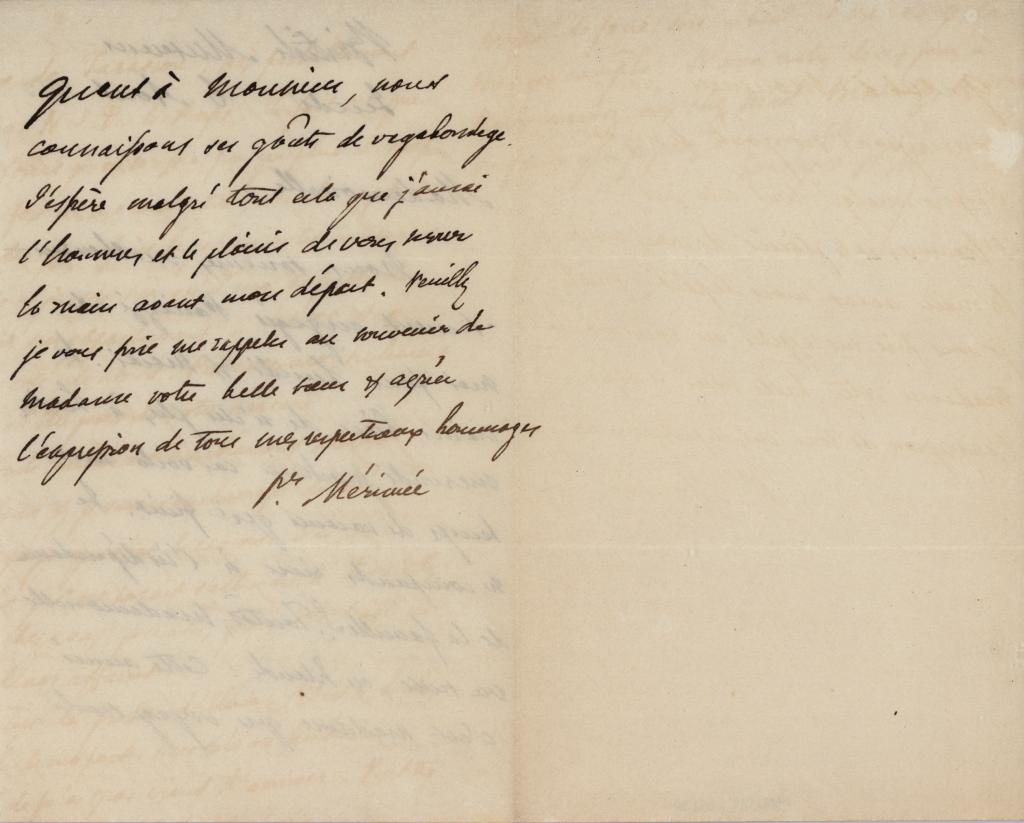 Quant à Monsieur, nous
connaissons ses goûts de vagabondage.
J'espère malgré tout cela que j'aurai
l'honneur et le plaisir de vous serrer
la main avant mon départ. Veuillez
je vous prie me rappeler au souvenir de
Madame votre belle sœur & agréer
l'expression de tous mes respectueux hommages
Pr. Mérimée